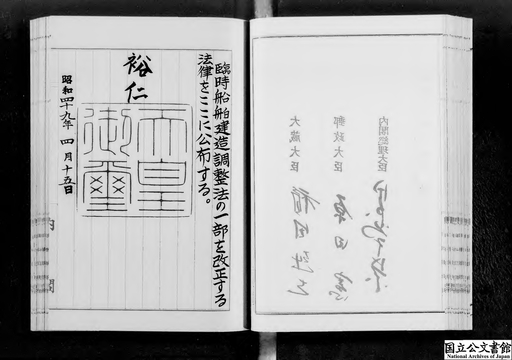 臨時船舶建造調整法の一部を改正する
法律をここに公布する。
裕仁
天皇
御璽
昭和四十九年四月十五日
内閣
内閣総理大臣
郵政大臣
大蔵大臣
国立公文書館
National Archives of Japan